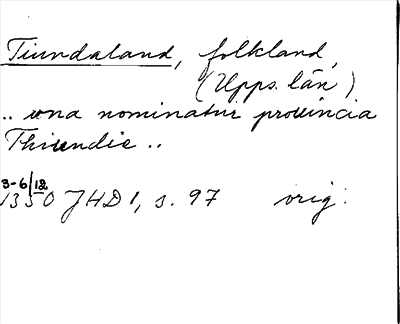 Tiundaland, folkland,
(Upps. län)
.. una nominatur prouincia
Thiundie ..
3-6/12
1350 JHD 1, s. 97 orig.